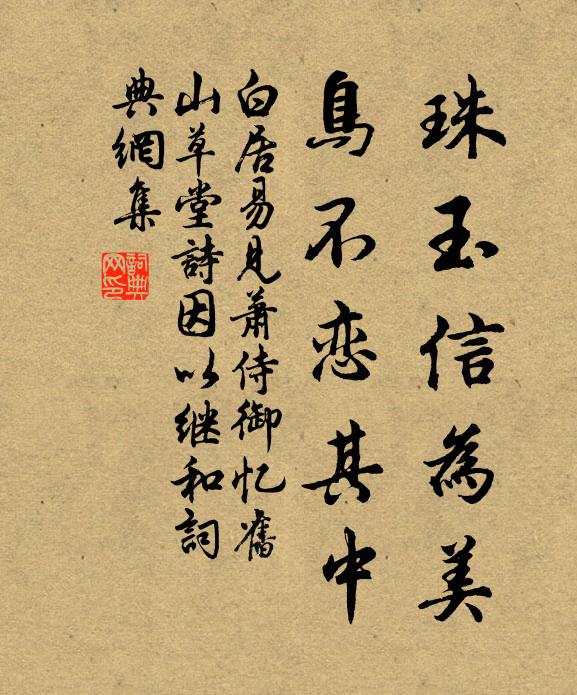 珠玉信為美
鳥不恋其中
白居易見蕭侍御忆舊
山草堂詩因以继和詞
典網集
詞典網印